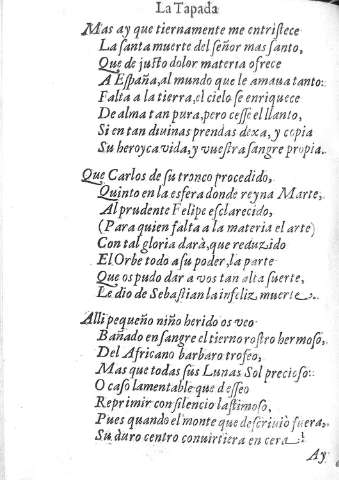 La Tapada
Mas ay que tiernamente me entristece
La santa muerte del señor mas santo,
Que de justo dolor materia ofrece
A España, al mundo que le amaua tanto:
Falta a la tierra, el cielo se enriquece
De alma tan pura, pero cesse el llanto,
Si en tan diuinas prendas dexa, y copia
Su heroyca vida, y vuestra sangre propia.
Que Carlos de su tronco procedido,
Quinto en la esfera donde reyna Marte,
Al prudente Felipe esclarecido,
(Para quien falta a la materia el arte)
Con tal gloria darà, que reduzido
El Orbe todo a su poder, la parte
Que os pudo dar a vos tan alta suerte,
Le dio de Sebastian la infeliz muerte.
Alli pequeño niño herido os veo
Bañado en sangre el tierno rostro hermoso,
Del Africano barbaro trofeo,
Mas que todas sus Lunas Sol precioso:
O caso lamentable que desseo
Reprimir con silencio lastimoso,
Pues quando el monte que descriuio fuera,
Su duro centro conuirtiera en cera!
Ay